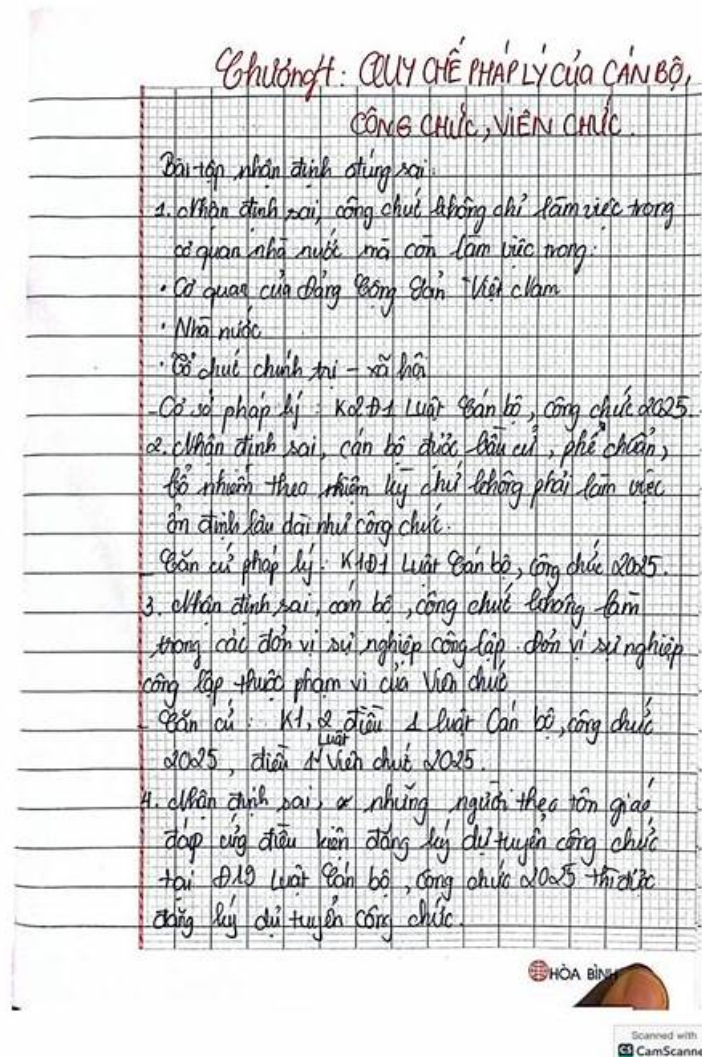 Chương 4: QUY CHẾ PHÁP LÝ CỦA CÁN BỘ,
CÔNG CHỨC, VIÊN CHỨC.
Bài tập nhận định đúng sai:
1. Nhận định sai, công chức không chỉ làm việc trong
cơ quan nhà nước mà còn làm việc trong:
• Cơ quan của Đảng Cộng Sản Việt Nam
• Nhà nước
• Tổ chức chính trị - xã hội
- Cơ sở pháp lý: K2Đ1 Luật Cán bộ, công chức 2025.
2. Nhận định sai, cán bộ được bầu cử, phê chuẩn,
bổ nhiệm theo nhiệm kỳ chứ không phải làm việc
ổn định lâu dài như công chức.
- Căn cứ pháp lý: K1Đ1 Luật Cán bộ, công chức 2025.
3. Nhận định sai, cán bộ, công chức không làm
trong các đơn vị sự nghiệp công lập. Đơn vị sự nghiệp
công lập thuộc phạm vi của Viên chức
- Căn cứ: K1, 2 điều 1 luật Cán bộ, công chức
2025, điều 1 Luật Viên chức 2025.
4. Nhận định sai, những người theo tôn giáo
đáp ứng điều kiện đăng ký dự tuyển công chức
tại Đ19 Luật Cán bộ, công chức 2025 thì được
đăng ký dự tuyển công chức.
HÒA BÌNH
Scanned with
CS CamScanne